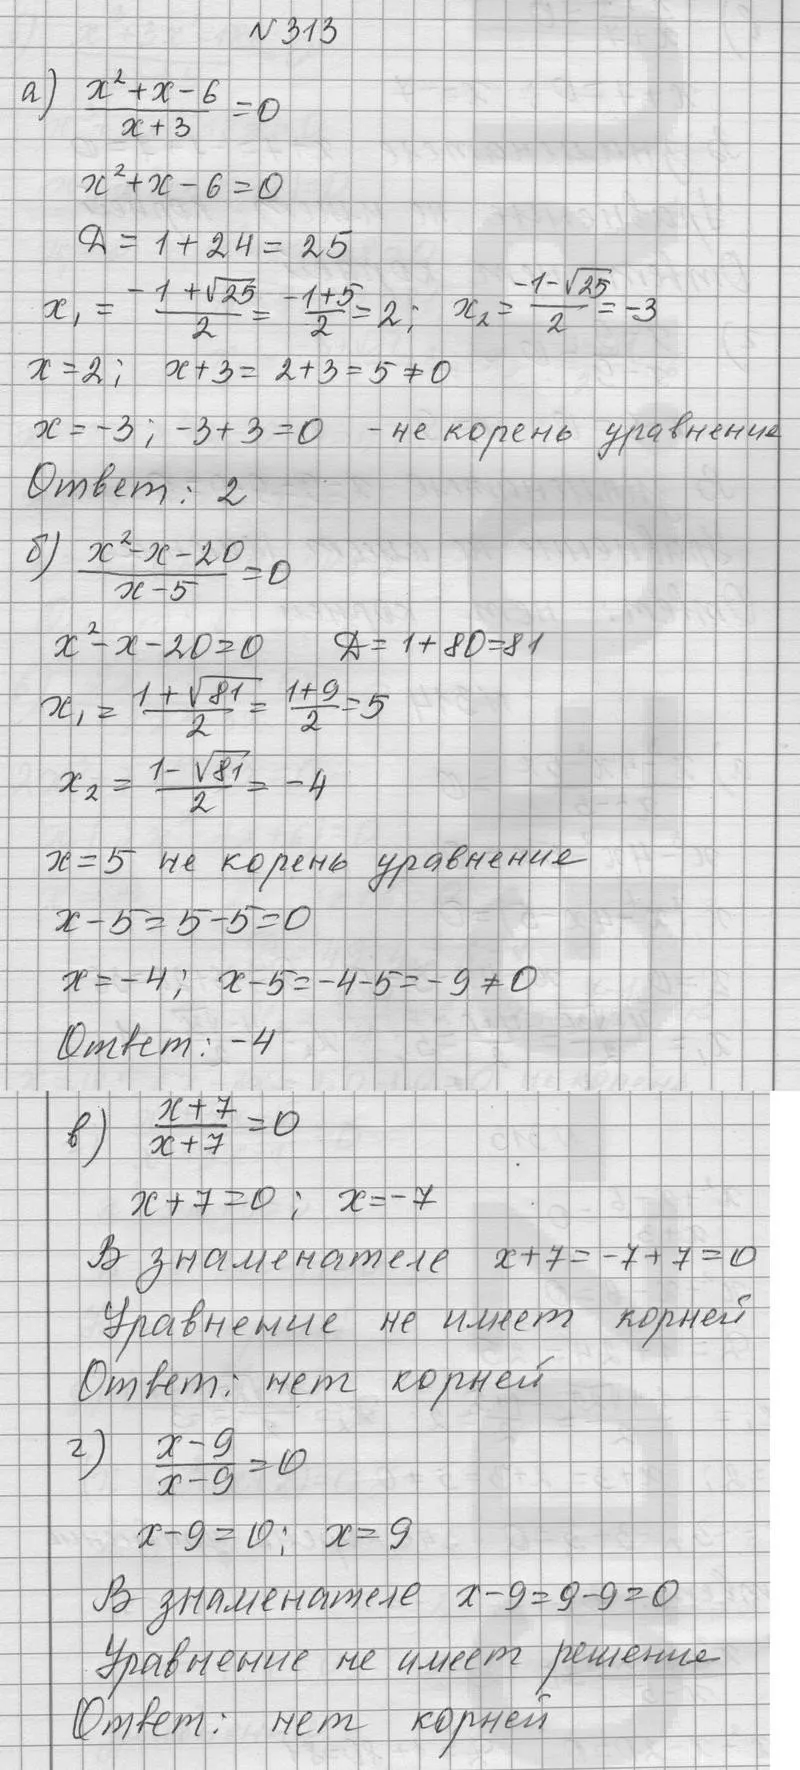 №313
а) (x²+x-6)/(x+3) =0
x²+x-6=0
Д=1+24=25
x₁ = (-1+√25)/2 = (-1+5)/2 =2; x₂= (-1-√25)/2 =-3
x=2; x+3=2+3=5≠0
x=-3; -3+3=0 -не корень уравнение
Ответ: 2
б) (x²-x-20)/(x-5) =0
x²-x-20=0 Д=1+80=81
x₁ = (1+√81)/2 = (1+9)/2 =5
x₂ = (1-√81)/2 = -4
x=5 не корень уравнение
x-5=5-5=0
x=-4; x-5=-4-5=-9≠0
Ответ: -4
в) (x+7)/(x+7) =0
x+7=0; x=-7
В знаменателе x+7=-7+7=0
Уравнение не имеет корней
Ответ: нет корней
г) (x-9)/(x-9) =0
x-9=0; x=9
В знаменателе x-9=9-9=0
Уравнение не имеет решение
Ответ: нет корней